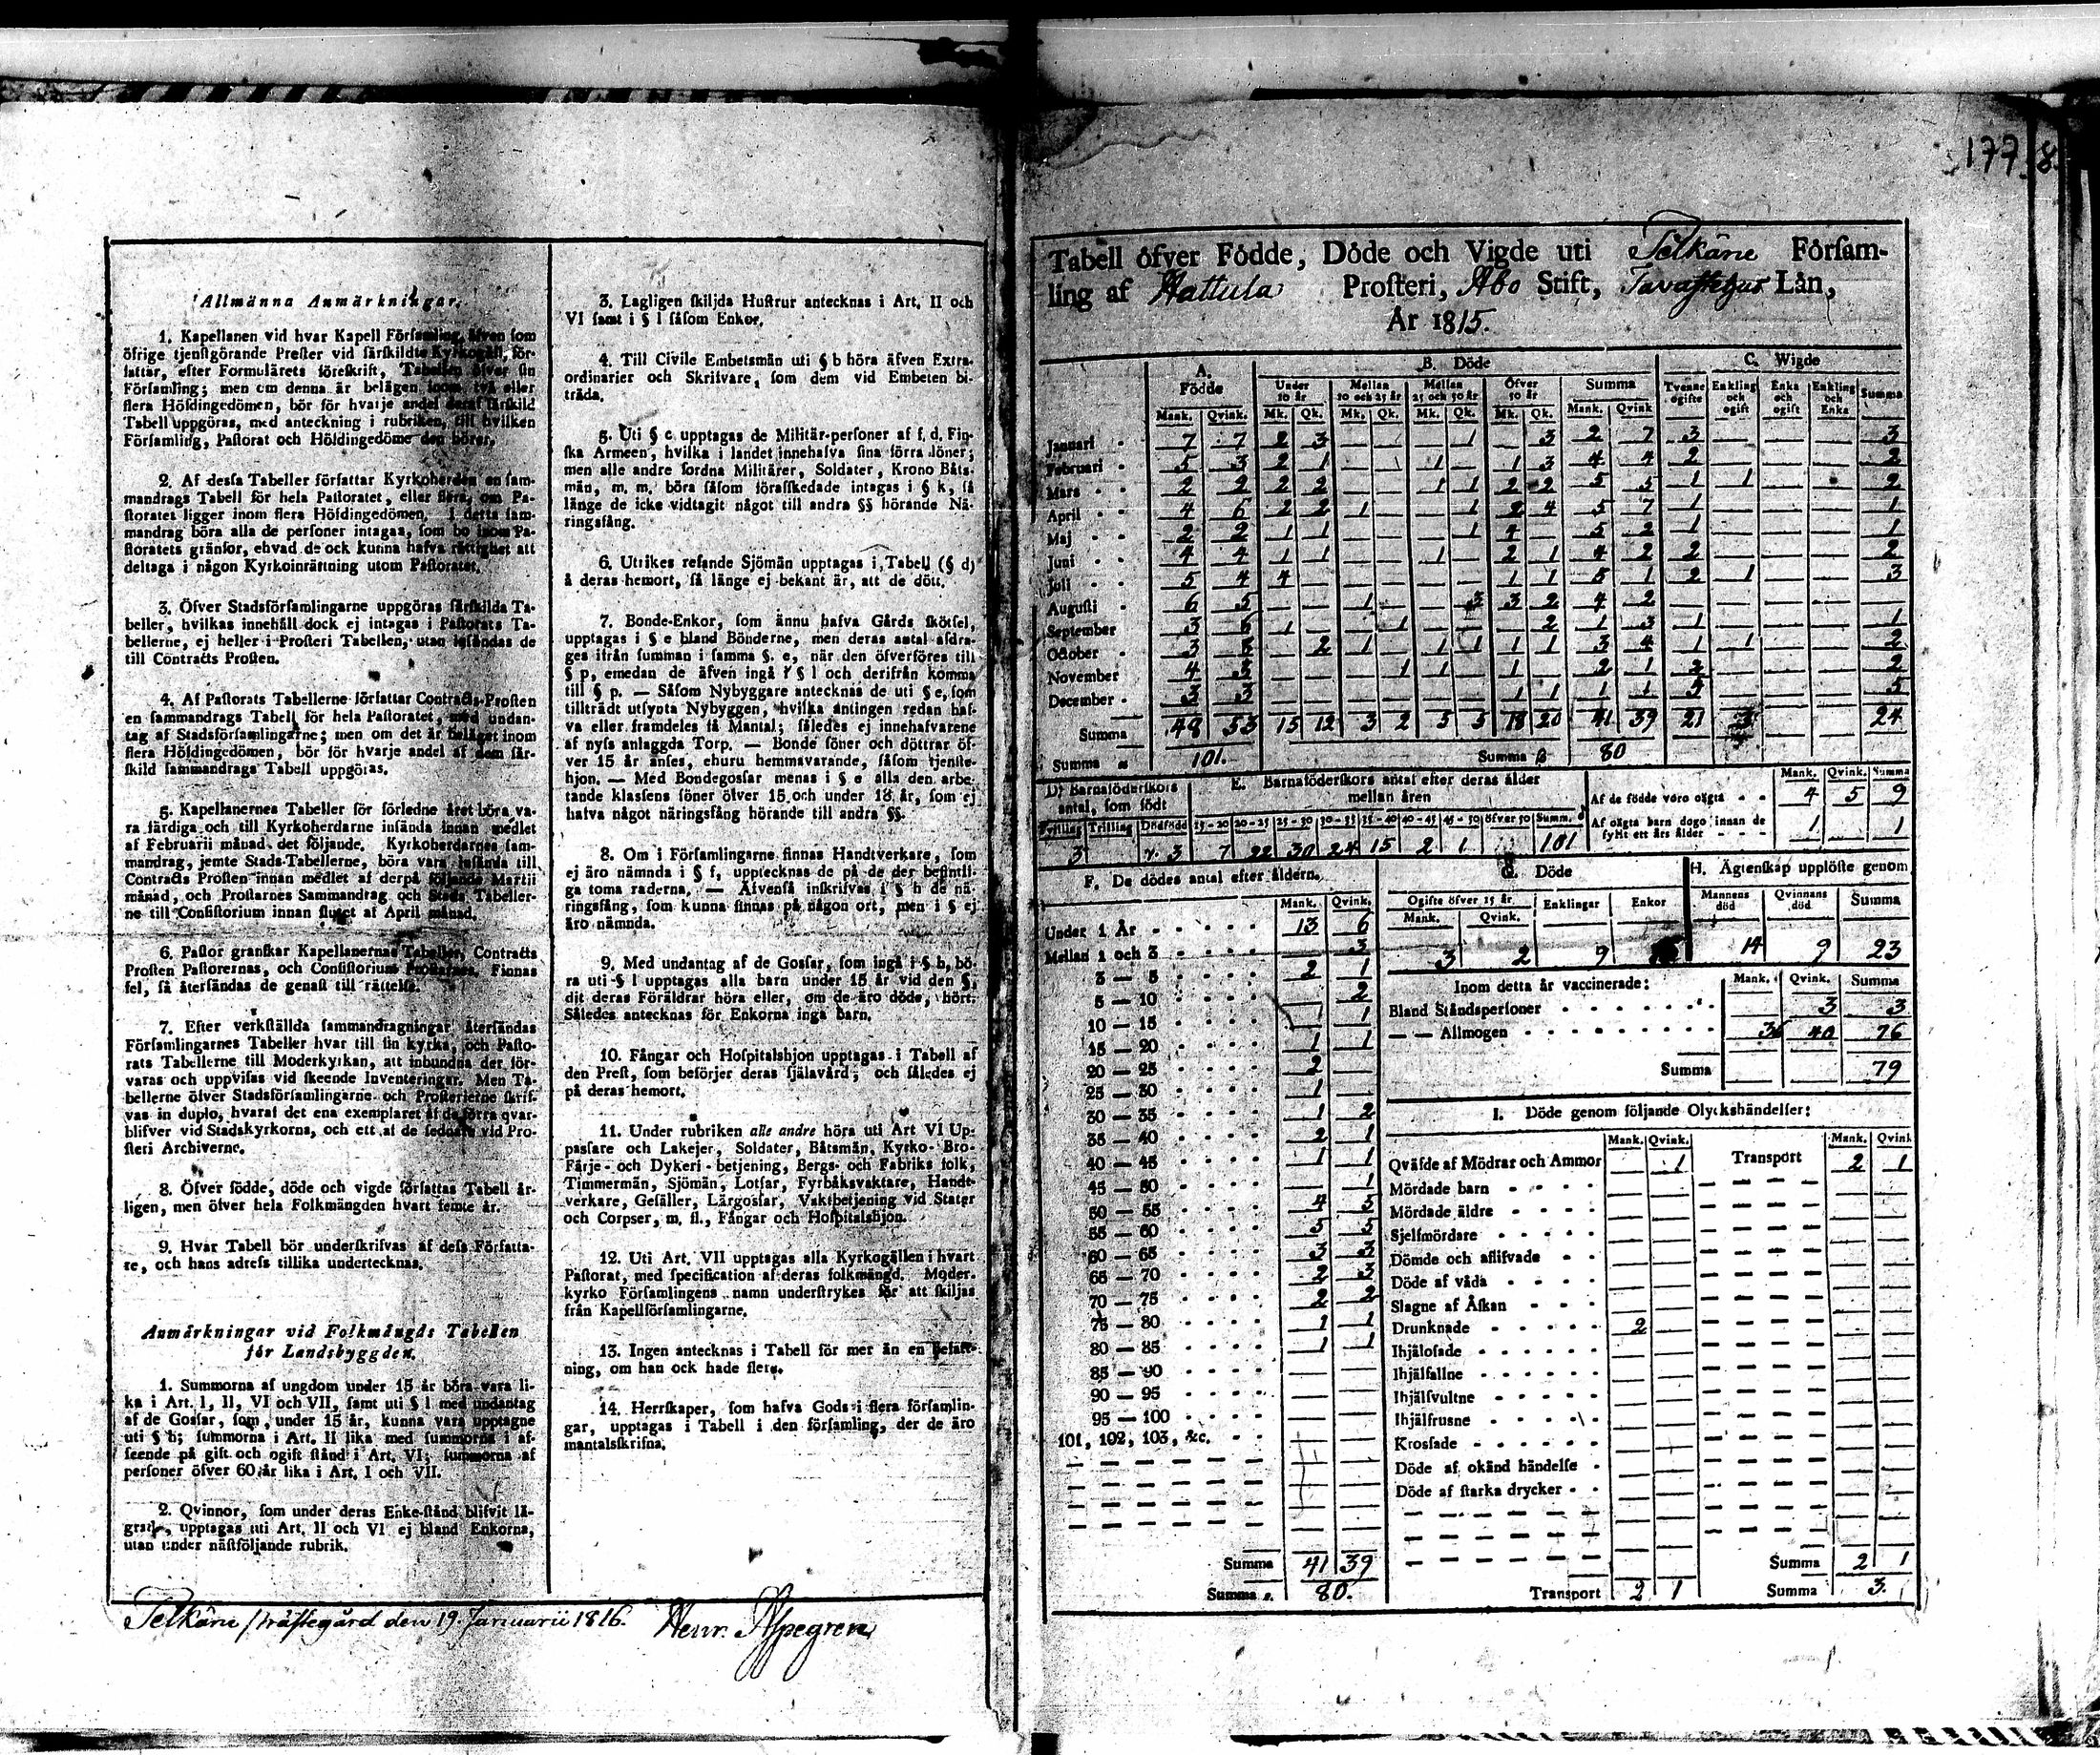 Allmänna Anmärkningar.
1. Kapellanen vid hvar Kapell Församling, äfven som
öfrige tjenstgörande Prester vid särskildte Kyrkogäll, för-
fattar, efter Formulärets föreskrift, Tabellen öfver sin
Församling; men om denna är belägen inom två eller
flera Höfdingedömen, bör för hvarje andel deraf särskild
Tabell uppgöras, med anteckning i rubriken, till hvilken
Församling, Pastorat och Höfdingedöme den hörer.
2. Af dessa Tabeller författar Kyrkoherden en sam-
mandrags Tabell för hela Pastoratet, eller flera, om Pa-
storatet ligger inom flera Höfdingedömen. I detta sam-
mandrag böra alla de personer intagas, som bo inom Pa-
storatets gränsor, ehvad de ock kunna hafva rättighet att
deltaga i någon Kyrkoinrättning utom Pastoratet.
3. Öfver Stadsförsamlingarne uppgöras särskilda Ta-
beller, hvilkas innehåll dock ej intagas i Pastorats Ta-
bellerne, ej heller i Prosteri Tabellen, utan insändas de
till Contracts Prosten.
4. Af Pastorats Tabellerne författar Contracts-Prosten
en sammandrags Tabell för hela Pastoratet, med undan-
tag af Stadsförsamlingarne; men om det är beläget inom
flera Höfdingedömen, bör för hvarje andel af dem sär-
skild sammandrags Tabell uppgöras.
5. Kapellanernes Tabeller för förledne året böra va-
ra färdiga och till Kyrkoherdarne insända innan medlet
af Februarii månad det följande. Kyrkoherdarnes sam-
mandrag, jemte Stads-Tabellerne, böra vara insända till
Contracts Prosten innan medlet af derpå följande Martii
månad, och Prostarnes Sammandrag och Stads Tabeller-
ne till Consistorium innan slutet af April månad.
6. Pastor granskar Kapellanernas Tabeller, Contracts
Prosten Pastorernas, och Consistorium Prostarnes. Finnas
fel, så återsändas de genast till rättelse.
7. Efter verkställda sammandragningar återsändas
Församlingarnes Tabeller hvar till sin kyrka, och Pasto-
rats Tabellerne till Moderkyrkan, att inbundna der för-
varas och uppvisas vid skeende Inventeringar. Men Ta-
bellerne öfver Stadsförsamlingarne och Prosterierne skrif-
vas in duplo, hvaraf det ena exemplaret af de förra qvar-
blifver vid Stadskyrkorna, och ett af de sednare vid Pro-
steri Archiverne.
8. Öfver födde, döde och vigde författas Tabell år-
ligen, men öfver hela Folkmängden hvart femte år.
9. Hvar Tabell bör underskrifvas af dess Författa-
re, och hans adress tillika undertecknas.
Anmärkningar vid Folkmängds Tabellen
för Landsbyggden.
1. Summorna af ungdom under 15 år böra vara li-
ka i Art. I, II, VI och VII, samt uti § l med undantag
af de Gossar, som, under 15 år, kunna vara upptagne
uti § h; summorna i Art. II lika med summorna i af-
seende på gift och ogift stånd i Art. VI; summorna af
personer öfver 60 år lika i Art. I och VII.
2. Qvinnor, som under deras Enke-stånd blifvit lä-
grade, upptagas uti Art. II och VI ej bland Enkorna,
utan under nästföljande rubrik.
3. Lagligen skiljda Hustrur antecknas i Art. II och
VI samt i § l såsom Enkor.
4. Till Civile Embetsmän uti § b höra äfven Extra-
ordinarier och Skrifvare, som dem vid Embeten bi-
träda.
5. Uti § c upptagas de Militär-personer af f. d. Fin-
ska Armeen, hvilka i landet innehafva sina förra löner;
men alle andre fordna Militärer, Soldater, Krono Båts-
män, m. m. böra såsom förafskedade intagas i § k, så
länge de icke vidtagit något till andra §§ hörande Nä-
ringsfång.
6. Utrikes resande Sjömän upptagas i Tabell (§ d)
å deras hemort, så länge ej bekant är, att de dött.
7. Bonde-Enkor, som ännu hafva Gårds skötsel,
upptagas i § e bland Bönderne, men deras antal afdra-
ges ifrån summan i samma §. e, när den öfverföres till
§ p, emedan de äfven ingå i § l och derifrån komma
till § p. — Såsom Nybyggare antecknas de uti § e, som
tillträdt utsynta Nybyggen, hvilka antingen redan haf-
va eller framdeles få Mantal; således ej innehafvarene
af nyss anlaggda Torp. — Bonde söner och döttrar öf-
ver 15 år anses, ehuru hemmavarande, såsom tjenste-
hjon. — Med Bondegossar menas i § e alla den arbe-
tande klassens söner öfver 15 och under 18 år, som ej
hafva något näringsfång hörande till andra §§.
8. Om i Församlingarne finnas Handtverkare, som
ej äro nämnda i § f, upptecknas de på de der befintli-
ga toma raderna. — Äfvenså inskrifvas i § h de nä-
ringsfång, som kunna finnas på någon ort, men i § ej
äro nämnda.
9. Med undantag af de Gossar, som ingå i § h, bö-
ra uti § l upptagas alla barn under 15 år vid den §,
dit deras Föräldrar höra eller, om de äro döde, hört.
Således antecknas för Enkorna inga barn.
10. Fångar och Hospitalshjon upptagas i Tabell af
den Prest, som besörjer deras själavård; och således ej
på deras hemort.
11. Under rubriken alle andre höra uti Art VI Up-
passare och Lakejer, Soldater, Båtsmän, Kyrko- Bro-
Färje- och Dykeri-betjening, Bergs- och Fabriks folk,
Timmermän, Sjömän, Lotsar, Fyrbåksvaktare, Handt-
verkare, Gesäller, Lärgossar, Vaktbetjening vid Stater
och Corpser, m. fl., Fångar och Hospitalshjon.
12. Uti Art. VII upptagas alla Kyrkogällen i hvart
Pastorat, med specification af deras folkmängd. Moder-
kyrko Församlingens namn understrykes för att skiljas
från Kapellförsamlingarne.
13. Ingen antecknas i Tabell för mer än en befatt-
ning, om han ock hade flera.
14. Herrskaper, som hafva Gods i flera församlin-
gar, upptagas i Tabell i den församling, der de äro
mantalsskrifna.
Pelkäne Prästegård den 19. Januarii 1816. Henr. Aspegren
177 8
Tabell öfver Födde, Döde och Vigde uti Pelkäne Försam-
ling af Hattula Prosteri, Åbo Stift, Tavastehus Län,
År 1815.
A. Födde B. Döde C. Wigde
Under 10 år Mellan 10 och 25 år Mellan 25 och 50 år Öfver 50 år Summa Tvenne ogifte Enkling och ogift Enka och ogift Enkling och Enka Summa
Mank. Qvink. Mk. Qk. Mk. Qk. Mk. Qk. Mk. Qk. Mank. Qvink
Januari 7 7 2 3 — — — 1 — 3 2 7 3 — — — 3
Februari 5 3 2 1 — — 1 — 1 3 4 4 2 — — — 2
Mars 2 2 2 2 — — 1 1 2 2 5 5 1 1 — — 2
April 4 6 2 2 1 — — 1 2 4 5 7 1 — — — 1
Maj 2 2 1 1 — — — 1 4 — 5 2 1 — — — 1
Juni 4 4 1 1 — — 1 — 2 1 4 2 2 — — — 2
Juli 5 4 4 — — — — — 1 1 5 1 2 1 — — 3
Augusti 6 5 — — 1 — — 3 2 4 2 — — — —
September 3 5 1 — — 1 — — — 2 1 3 1 — — — 1
October 3 5 — 2 1 — 1 1 1 1 3 4 1 1 — — 2
November 4 — — — 1 1 — 1 — 2 1 2 — — — 2
December 3 3 — — — — — — 1 1 1 1 5 — — — 5
Summa 48 53 15 12 3 2 5 5 18 20 41 39 21 24
Summa 101. Summa 80
D. Barnaföderskors antal, som födt
Tvilling Trilling Dödfödd
3 3
E. Barnaföderskors antal efter deras ålder mellan åren
15-20 20-25 25-30 30-35 35-40 40-45 45-50 öfver 50 Summ.
7 22 30 24 15 2 1 101
Mank. Qvink. Summa
Af de födde voro oägta 4 5 9
Af oägta barn dogo innan de
fyllt ett års ålder 1 1
F. De dödes antal efter åldern.
Mank. Qvink.
Under 1 År 13 6
Mellan 1 och 3 — 3
3 — 5 2 1
5 — 10 — 2
10 — 15 — 1
15 — 20 1 1
20 — 25 2 —
25 — 30 1 —
30 — 35 1 2
35 — 40 2 1
40 — 45 1 1
45 — 50 — 1
50 — 55 4 5
55 — 60 5 5
60 — 65 3 3
65 — 70 2 3
70 — 75 2 2
75 — 80 1 1
80 — 85 1 1
85 — 90
90 — 95
95 — 100
101, 102, 103, &c.
Summa 41 39
Summa 80.
G. Döde
Ogifte öfver 15 år. Enklingar Enkor
Mank. Qvink.
3 2 9
H. Ägtenskap upplöste genom
Mannens död Qvinnans död Summa
14 9 23
Inom detta år vaccinerade: Mank. Qvink. Summa
Bland Ståndspersoner — 3 3
— — Allmogen 36 40 76
Summa 79
I. Döde genom följande Olyckshändelser:
Mank. Qvink. Mank. Qvink
Qväfde af Mödrar och Ammor — 1 Transport 2 1
Mördade barn
Mördade äldre
Sjelfmördare
Dömde och aflifvade
Döde af våda
Slagne af Åskan
Drunknade 2 —
Ihjälosade
Ihjälfallne
Ihjälsvultne
Ihjälfrusne
Krossade
Döde af okänd händelse
Döde af starka drycker
Summa 2 1
Transport 2 1 Summa 3.